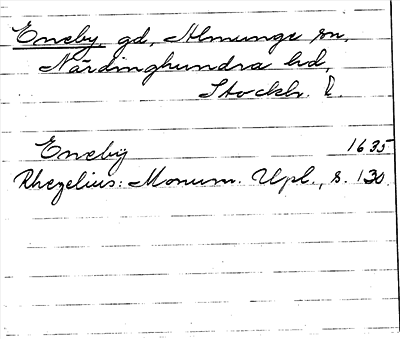 Eneby, gd, Almunge sn,
Närdinghundra hd,
Stockh. l.
Eneby 1635
Rhezelius: Monum. Upl., s. 130.